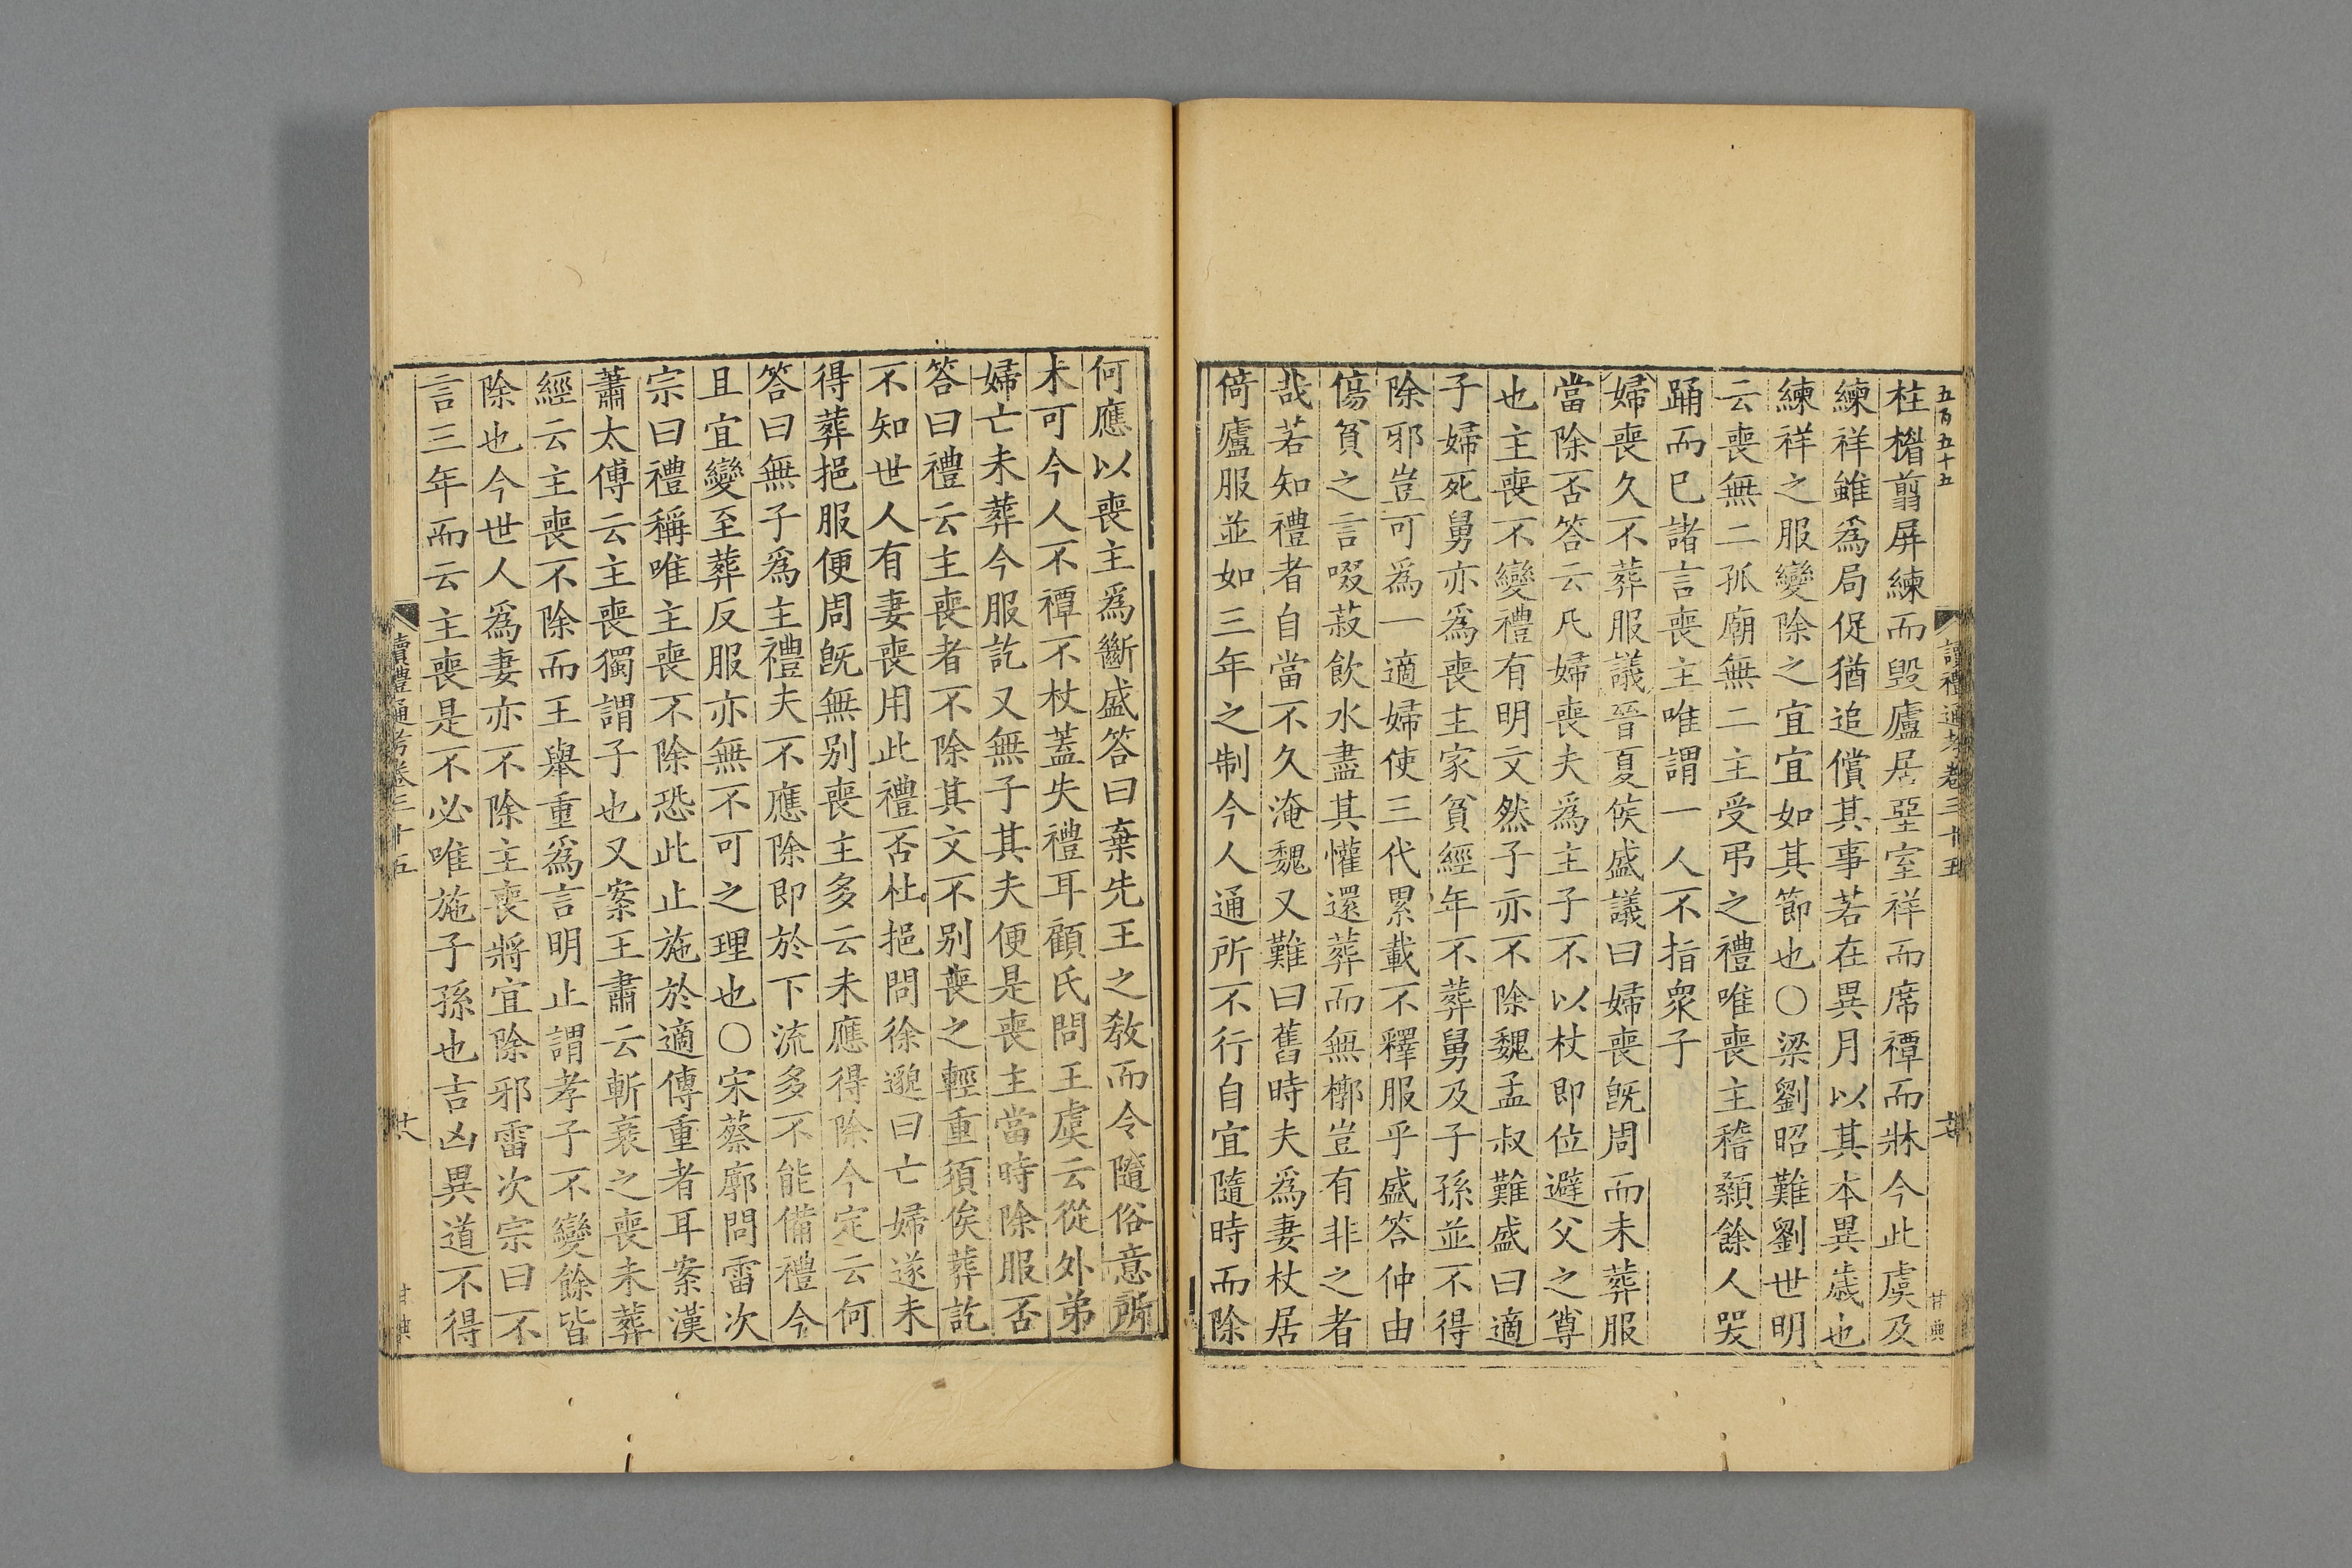 五百五十五
讀禮通考卷三十五
甘典
柱楣翦屏練而毀廬居堊室祥而席禫而牀今此虞及
練祥雖爲局促猶追償其事若在異月以其本異歲也
練祥之服變除之宜宜如其節也○梁劉昭難劉世明
云喪無二孤廟無二主受弔之禮唯喪主稽顙餘人哭
踊而已諸言喪主唯謂一人不指衆子
婦喪久不葬服議晉夏侯盛議曰婦喪旣周而未葬服
當除否答云凡婦喪夫爲主子不以杖即位避父之尊
也主喪不變禮有明文然子亦不除魏孟叔難盛曰適
子婦死舅亦爲喪主家貧經年不葬舅及子孫並不得
除邪豈可爲一適婦使三代累載不釋服乎盛答仲由
傷貧之言啜菽飲水盡其懽還葬而無槨豈有非之者
哉若知禮者自當不久淹魏又難曰舊時夫爲妻杖居
倚廬服並如三年之制今人通所不行自宜隨時而除
何應以喪主爲斷盛答曰棄先王之敎而令隨俗意所
未可今人不禫不杖蓋失禮耳顧氏問王虞云從外弟
婦亡未葬今服訖又無子其夫便是喪主當時除服否
答曰禮云主喪者不除其文不別喪之輕重須俟葬訖
不知世人有妻喪用此禮否杜挹問徐邈曰亡婦遂未
得葬挹服便周旣無別喪主多云未應得除今定云何
答曰無子爲主禮夫不應除即於下流多不能備禮今
且宜變至葬反服亦無不可之理也○宋蔡廓問雷次
宗曰禮稱唯主喪不除恐此止施於適傳重者耳案漢
蕭太傅云主喪獨謂子也又案王肅云斬衰之喪未葬
經云主喪不除而王舉重爲言明止謂孝子不變餘皆
除也今世人爲妻亦不除主喪將宜除邪雷次宗曰不
言三年而云主喪是不必唯施子孫也吉凶異道不得
讀禮通考卷三十五
廿八